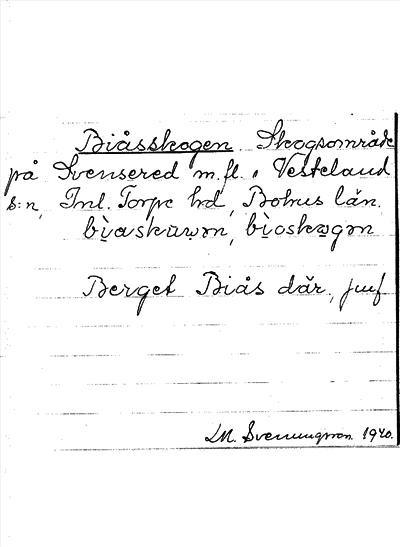 Biåsskogen. Skogsområde
på Svensered m.fl. i Vesteland
s:n, Inl. Torpe hd, Bohus län.
Berget Biås där, jmf
LM. Svenungsson 1940.